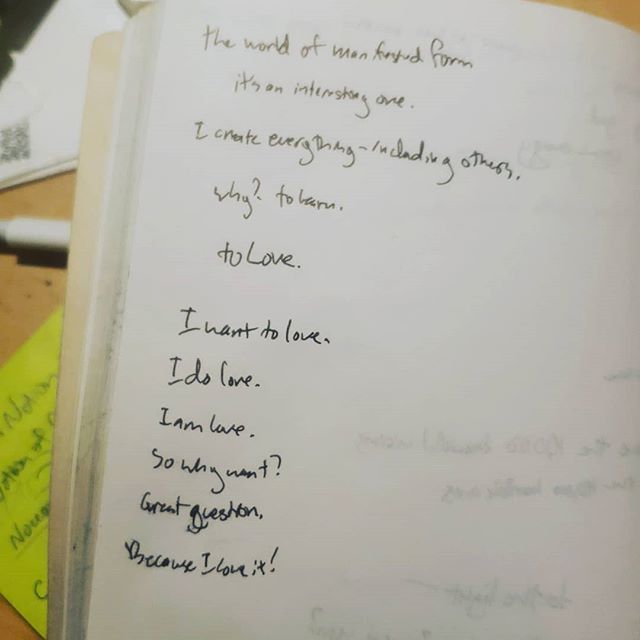 the world of manifested form
it's an interesting one.
I create everything - including others.
why? to learn.
to Love.
I want to love.
I do love.
I am love.
So why want?
Great question.
Because I love it!